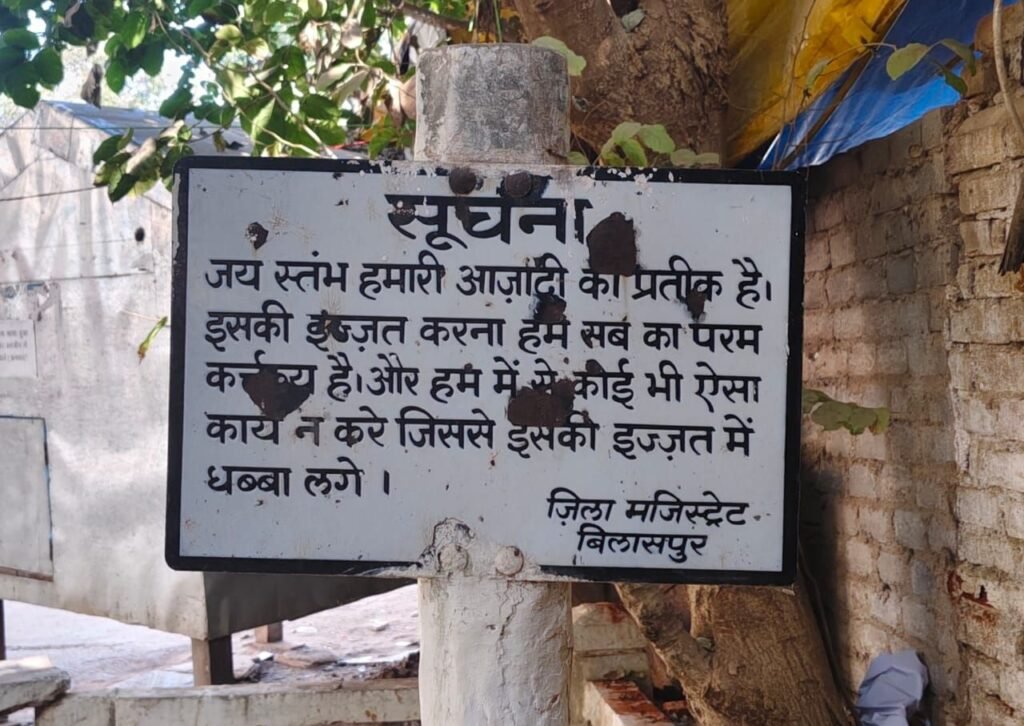 सूचना
जय स्तंभ हमारी आज़ादी का प्रतीक है।
इसकी इज्ज़त करना हम सब का परम
कर्त्तव्य है। और हम में से कोई भी ऐसा
कार्य न करे जिससे इसकी इज्ज़त में
धब्बा लगे ।
ज़िला मजिस्ट्रेट
बिलासपुर